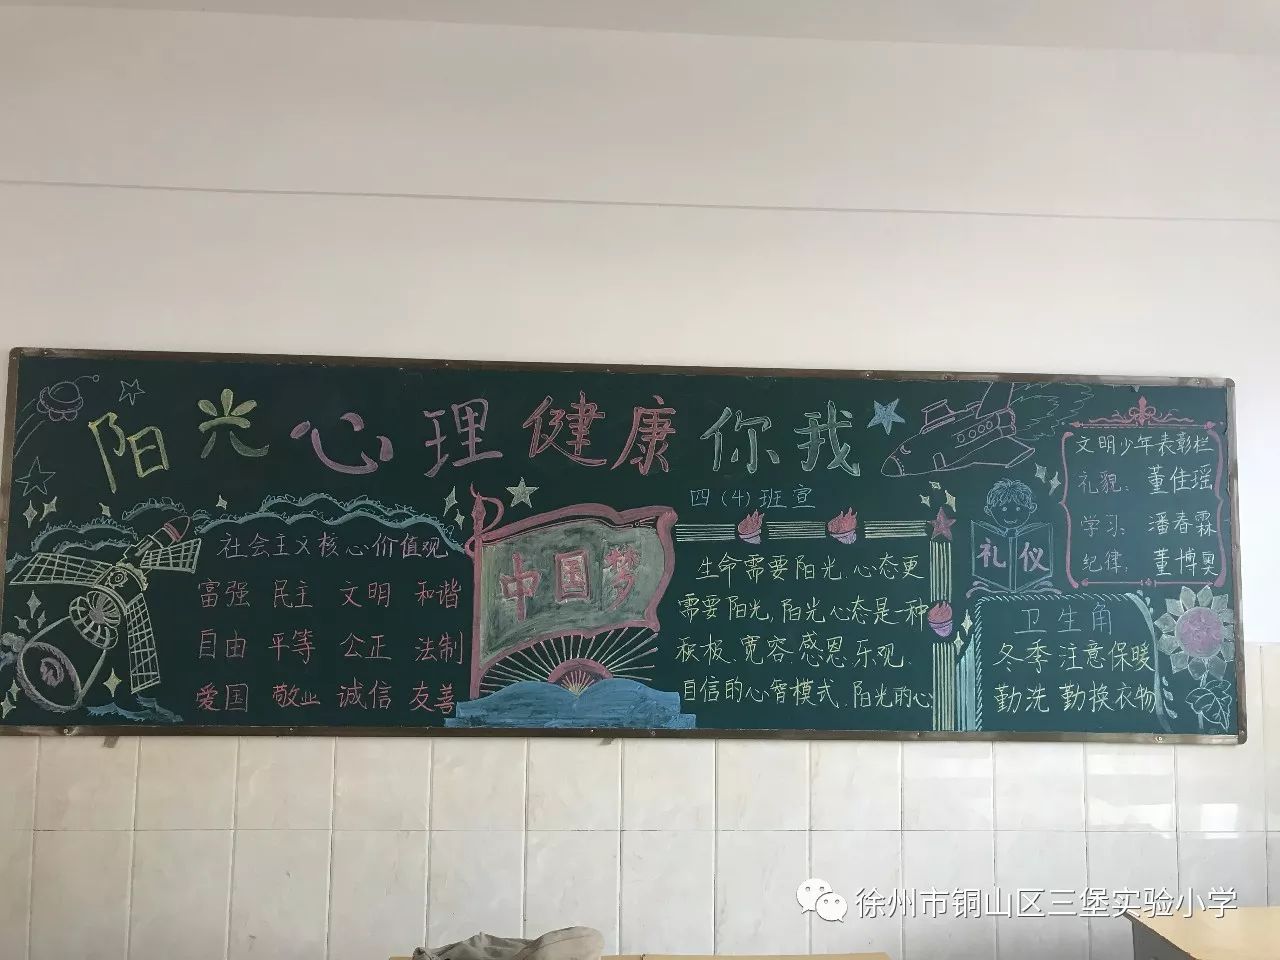 阳光心理健康你我
社会主义核心价值观
富强 民主 文明 和谐
自由 平等 公正 法制
爱国 敬业 诚信 友善
中国梦
四（4）班宣
生命需要阳光、心态更
需要阳光，阳光心态是一种
积极、宽容、感恩、乐观、
自信的心智模式、阳光的心
礼仪
文明少年表彰栏
礼貌：董佳瑶
学习：潘春霖
纪律：董博奥
卫生角
冬季注意保暖
勤洗勤换衣物
徐州市铜山区三堡实验小学